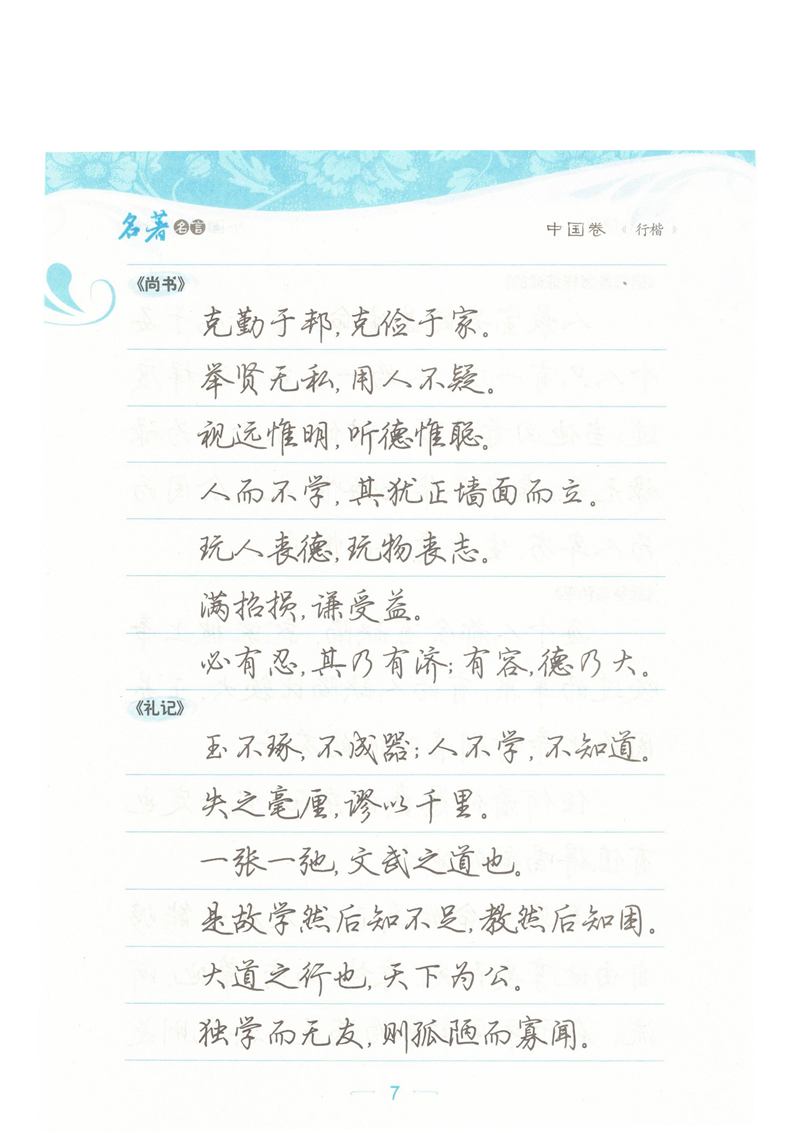 名著名言
中国卷《行楷》
《尚书》
克勤于邦,克俭于家。
举贤无私,用人不疑。
视远惟明,听德惟聪。
人而不学,其犹正墙面而立。
玩人丧德,玩物丧志。
满招损,谦受益。
必有忍,其乃有济;有容,德乃大。
《礼记》
玉不琢,不成器;人不学,不知道。
失之毫厘,谬以千里。
一张一弛,文武之道也。
是故学然后知不足,教然后知困。
大道之行也,天下为公。
独学而无友,则孤陋而寡闻。
7